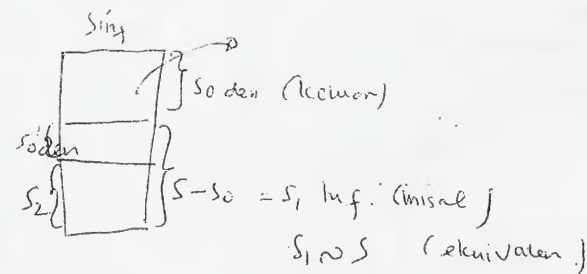 S inf
S0 den (keluar)
S0 den
S2
S - S0 = S1 Inf. (misal)
S1 ~ S (ekuivalen)